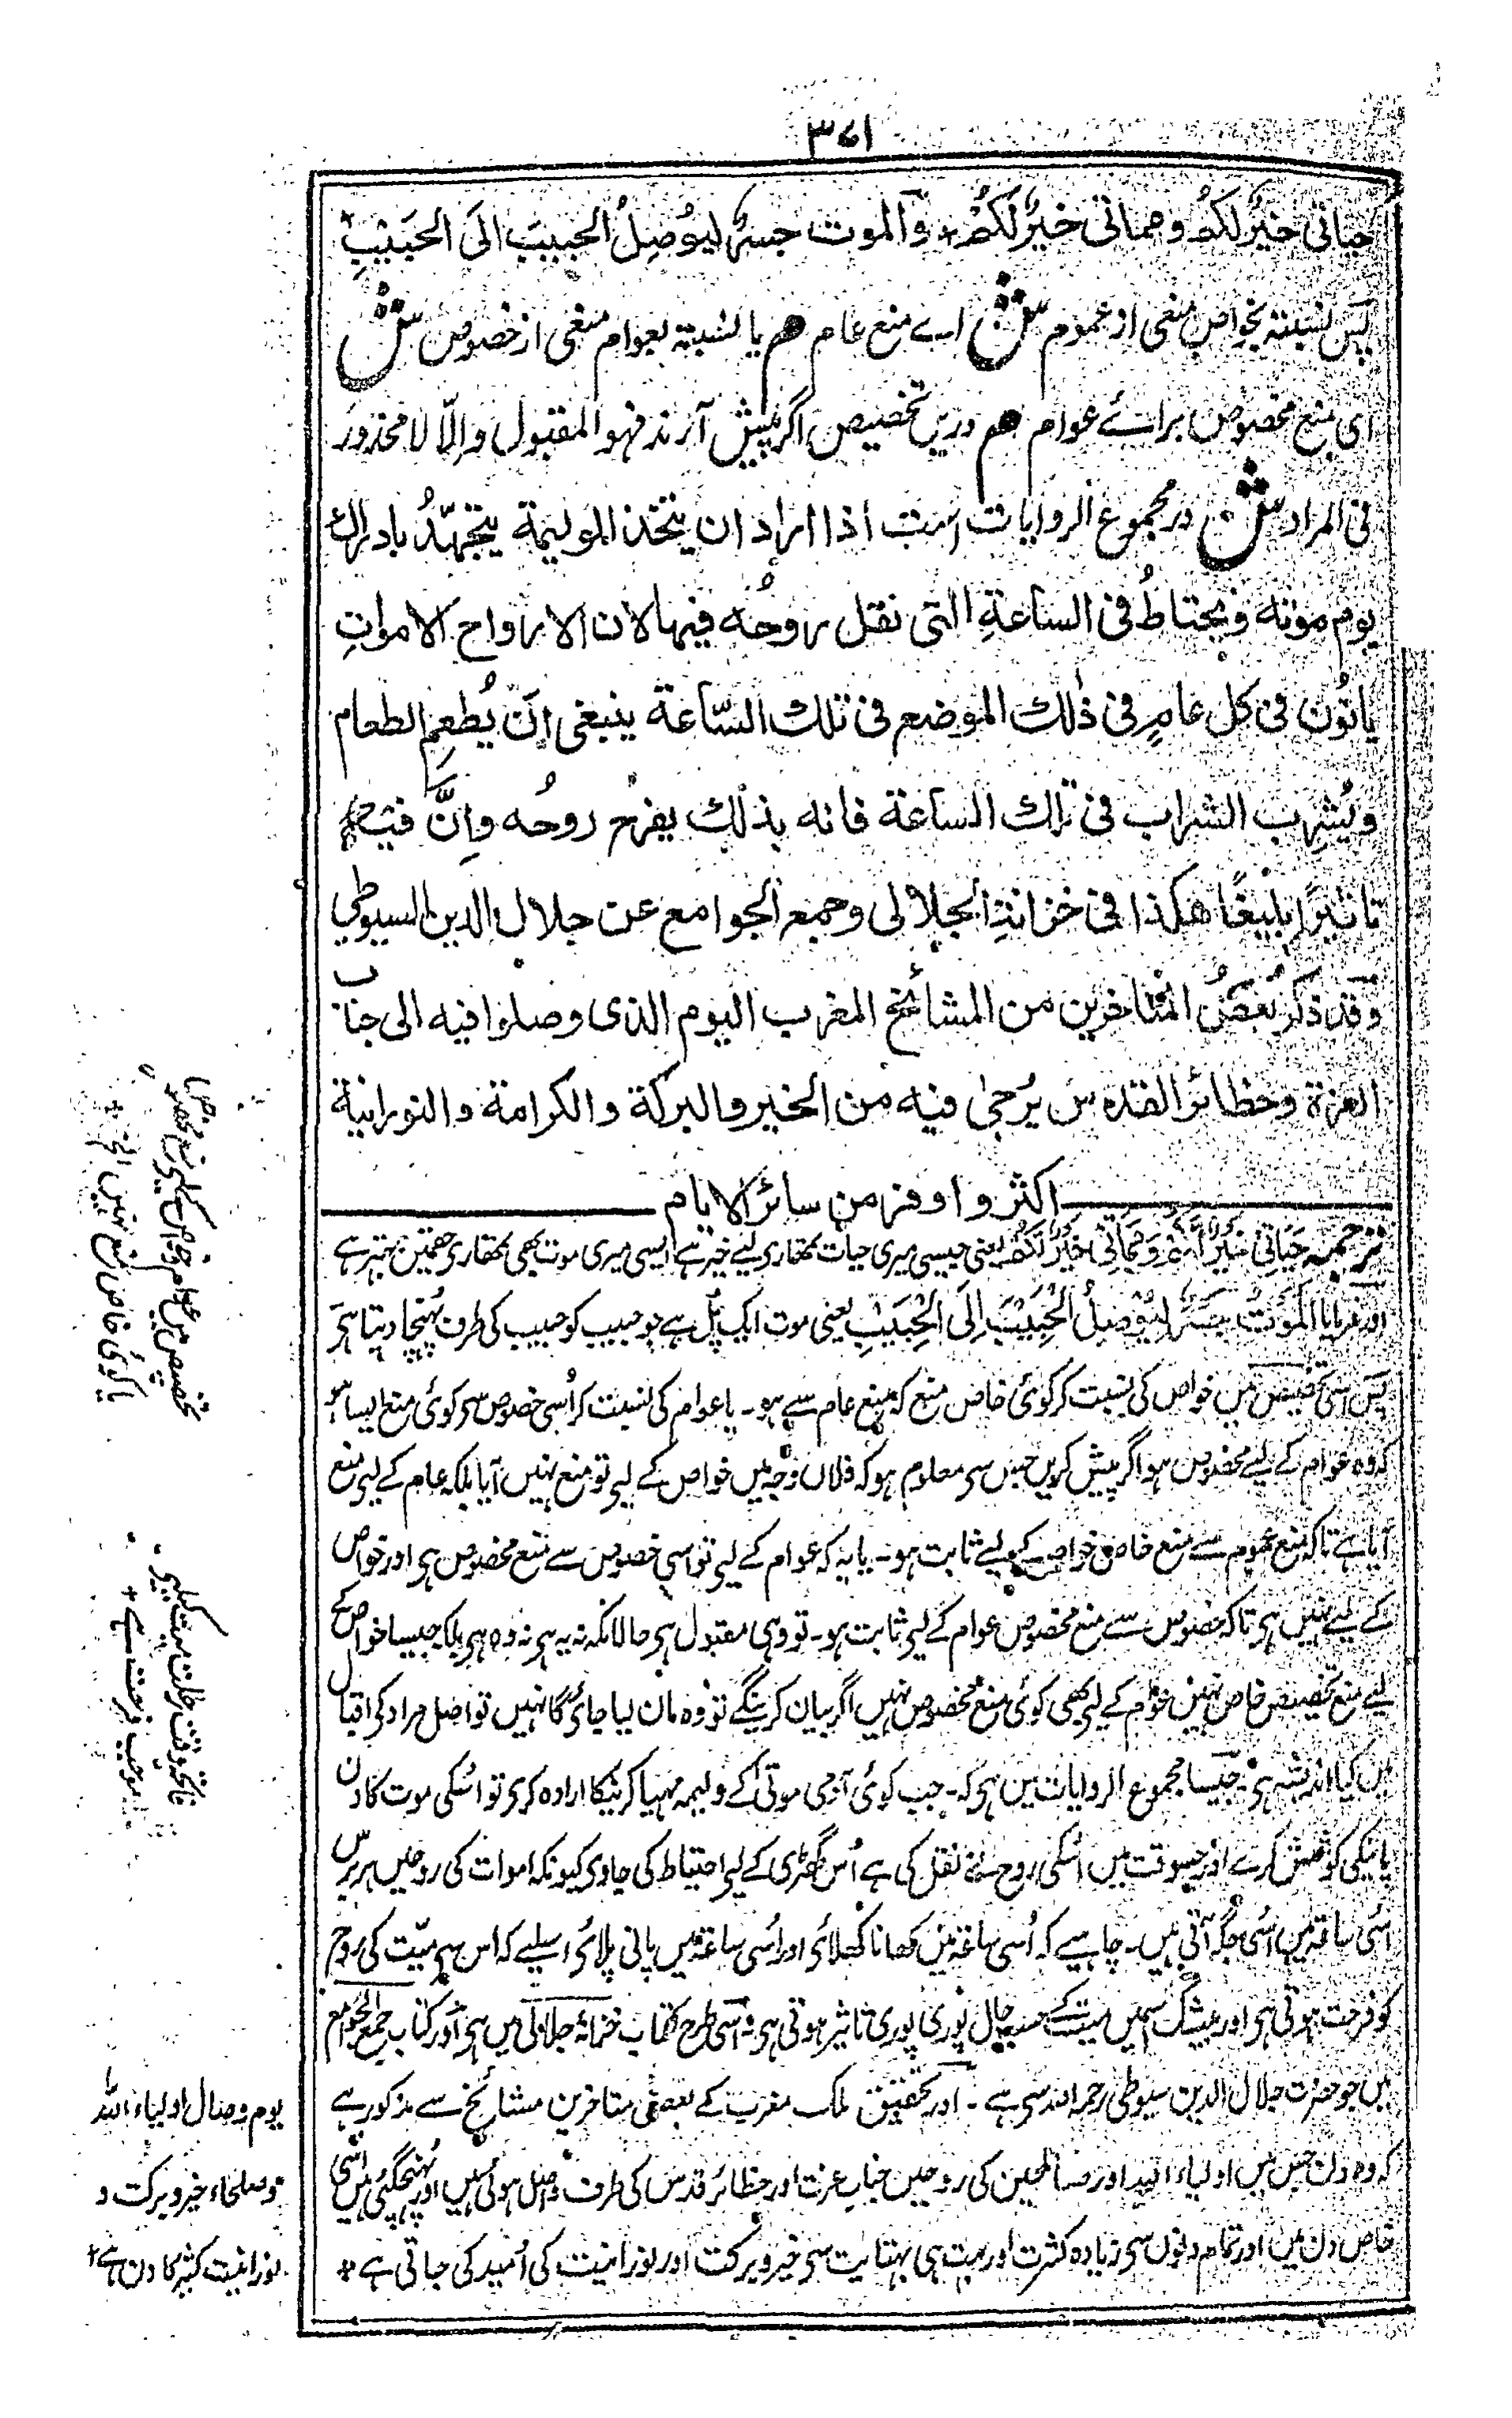 ۳۷۱
حیاتی خیرٌ لکم ومماتی خیرٌ لکم + والموت جسرٌ لیُوصِلُ الحبیبَ الَی الحَبیبِ +
پس نسبتہ بخواص منفی از عموم ش اے منع عام هم یا نسبتہ بعوام منفی از خصوص ش
ای منع مخصوص برائے عوام هم دریں تخصیص اگر پیش آرند فهو المقبول والّا لا محذور
فی المراد ش در مجموع الروایات است اذا اراد ان یتخذ الولیمة یتجهّدُ بادراك
یوم موته ویحتاطُ فی الساعةِ التی نقل روحُه فیها لان الارواح الامواتِ
یاتُون فی کل عامٍ فی ذٰلك الموضع فی تلك السّاعة ینبغی اَن یُطعِم الطعام
ویُشرِب الشراب فی تلك الساعة فانه بذٰلك یفرح روحُه واِنَّ فیه
تاثیرًا بلیغًا هکذا فی خزانة الجلالی وجمع الجوامع عن جلال الدین السیوطی
وقد ذکر بعضُ المتاخرین من المشائخ المغرب الیوم الذی وصلوا فیه الی جناب
العزة وحظائر القدس یُرجٰی فیه من الخیر والبرکة والکرامة والنورانیة
اکثر واوفر من سائر الایام
ترجمہ حَیَاتِی خَیْرٌ لَکُمْ وَمَمَاتِی خَیْرٌ لَکُمْ یعنی جیسی میری حیات تمھاری لیے خیر ہے ایسی میری موت بھی تمھاری حقمیں بہتر ہے
اور فرمایا اَلمَوْتُ جِسْرٌ لِیُوْصِلُ الْحَبِیْبَ اِلَی الْحَبِیْبِ یعنی موت ایک پُل ہے جو حبیب کو حبیب کی طرف پُہنچا دیتا ہی
پس اسی تخصیص میں خواص کی نسبت کر کوئی خاص منع کہ منع عام سے ہو۔ یا عوام کی نسبت کر اُسی خصوص سی کوئی منع ایسا ہو
کہ وہ عوام کے لیے مخصوص ہو اگر پیش کریں جس سی معلوم ہو کہ فلاں وجہ میں خواص کے لیی تو منع نہیں آیا بلکہ عام کے لیی منع
آیا ہے تاکہ منع عموم سے منع خاص خواص کے لیے ثابت ہو۔ یا یہ کہ عوام کے لیی تو اسی خصوص سے منع مخصوص ہی اور خواص
کے لیے نہیں ہی تاکہ خصوص سے منع مخصوص عوام کے لیی ثابت ہو۔ تو وہی مقبول ہی حالانکہ نہ یہ ہی نہ وہ ہی بلکہ جیسا خواص کے
لیے منع تخصیص خاص نہیں عوام کے لیی بھی کوئی منع مخصوص نہیں اگر بیان کرینگے تو وہ مان لیا جائی گا نہیں تو اصل مراد کی اقبال
میں کیا اندیشہ ہی جیسا مجموع الروایات میں ہی کہ۔ جب کوئی آدمی موتیٰ کے ولیمہ مہیا کرنیکا ارادہ کری تو اسکی موت کا دن
پانیکی کوشش کرے اور جسوقت میں اسکی روح نے نقل کی ہے اُس گھڑی کے لیی احتیاط کی جاوی کیونکہ اموات کی روحیں ہر برس
اسی ساعتمیں اسی جگہ آتی ہیں۔ چاہیے کہ اُسی ساعتمیں کھانا کھلائی اور اُسی ساعتمیں پانی پلائی اسلیے کہ اس سی میّت کی روح
کو فرحت ہوتی ہی اور بیشک اسمیں میت کے حسب حال پوری پوری تاثیر ہوتی ہی اسی طرح کتاب خزانۂ جلالی میں ہی اور کتاب جمع الجوامع
میں جو حضرت جلال الدین سیوطی رحمہ اللہ سی ہے۔ اور بتحقیق ملک مغرب کے بعضی متاخرین مشائخ سے مذکور ہے
کہ وہ دن جس میں اولیاء اللہ اور صالحین کی روحیں جناب عزت اور حظائر قدس کی طرف واصل ہوئی ہیں اور پُہنچگئی ہیں اسی
خاص دن میں اور تمام دنوں سی زیادہ کثرت اور بہت ہی بہتایت سی خیر و برکت اور نورانیت کی اُمید کی جاتی ہے +
تخصیص میں عوام وخاص کے لیی منع مخصوص
یا کوئی خاص منع نہیں
فاتحہ وقت رحلت میت کیلیی
موجب فرحت ہے +
یوم وصال اولیاء اللہ
وصلحاء خیر وبرکت و
نورانیت کثیر کا دن ہے +